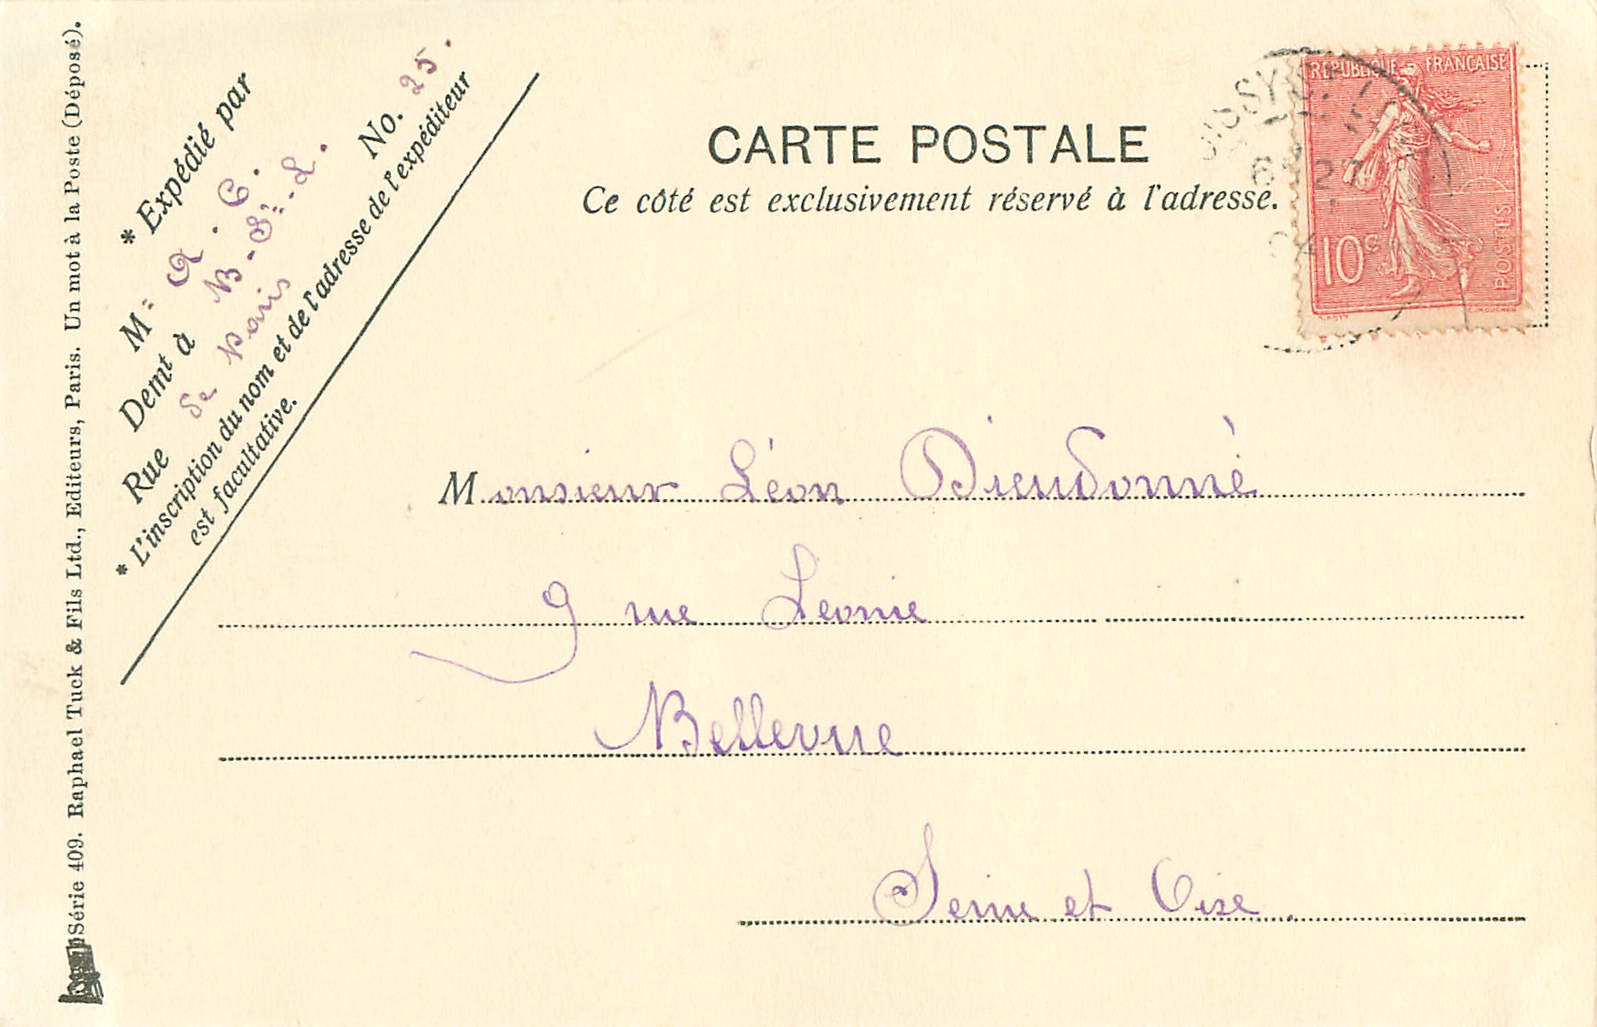 CARTE POSTALE
Ce côté est exclusivement réservé à l'adresse.
* Expédié par
M= A. C.
No. 25.
Demt à B-St-L.
Rue de Paris
* L'inscription du nom et de l'adresse de l'expéditeur
est facultative.
REPUBLIQUE FRANÇAISE
10c
POSTES
27
04
Monsieur Léon Dieudonné
9 rue Leonie
Bellevue
Seine et Oise.
Série 409. Raphael Tuck & Fils Ltd., Editeurs, Paris. Un mot à la Poste (Déposé).